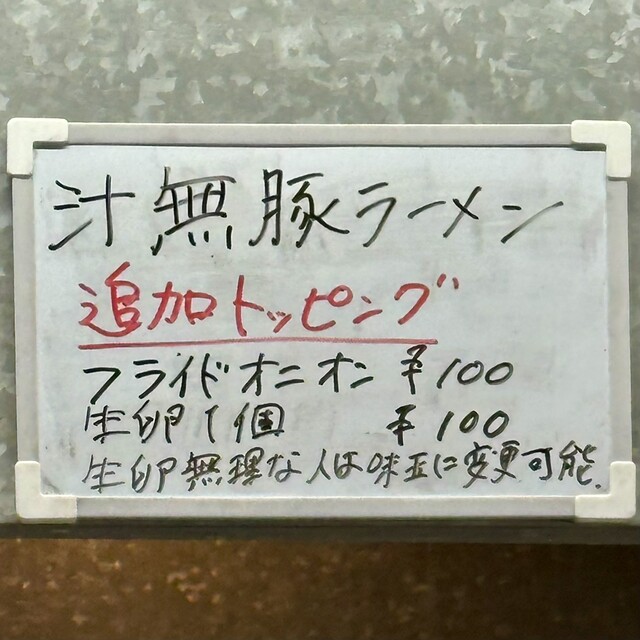 汁無豚ラーメン
追加トッピング
フライドオニオン ¥100
生卵1個 ¥100
生卵無理な人は味玉に変更可能.